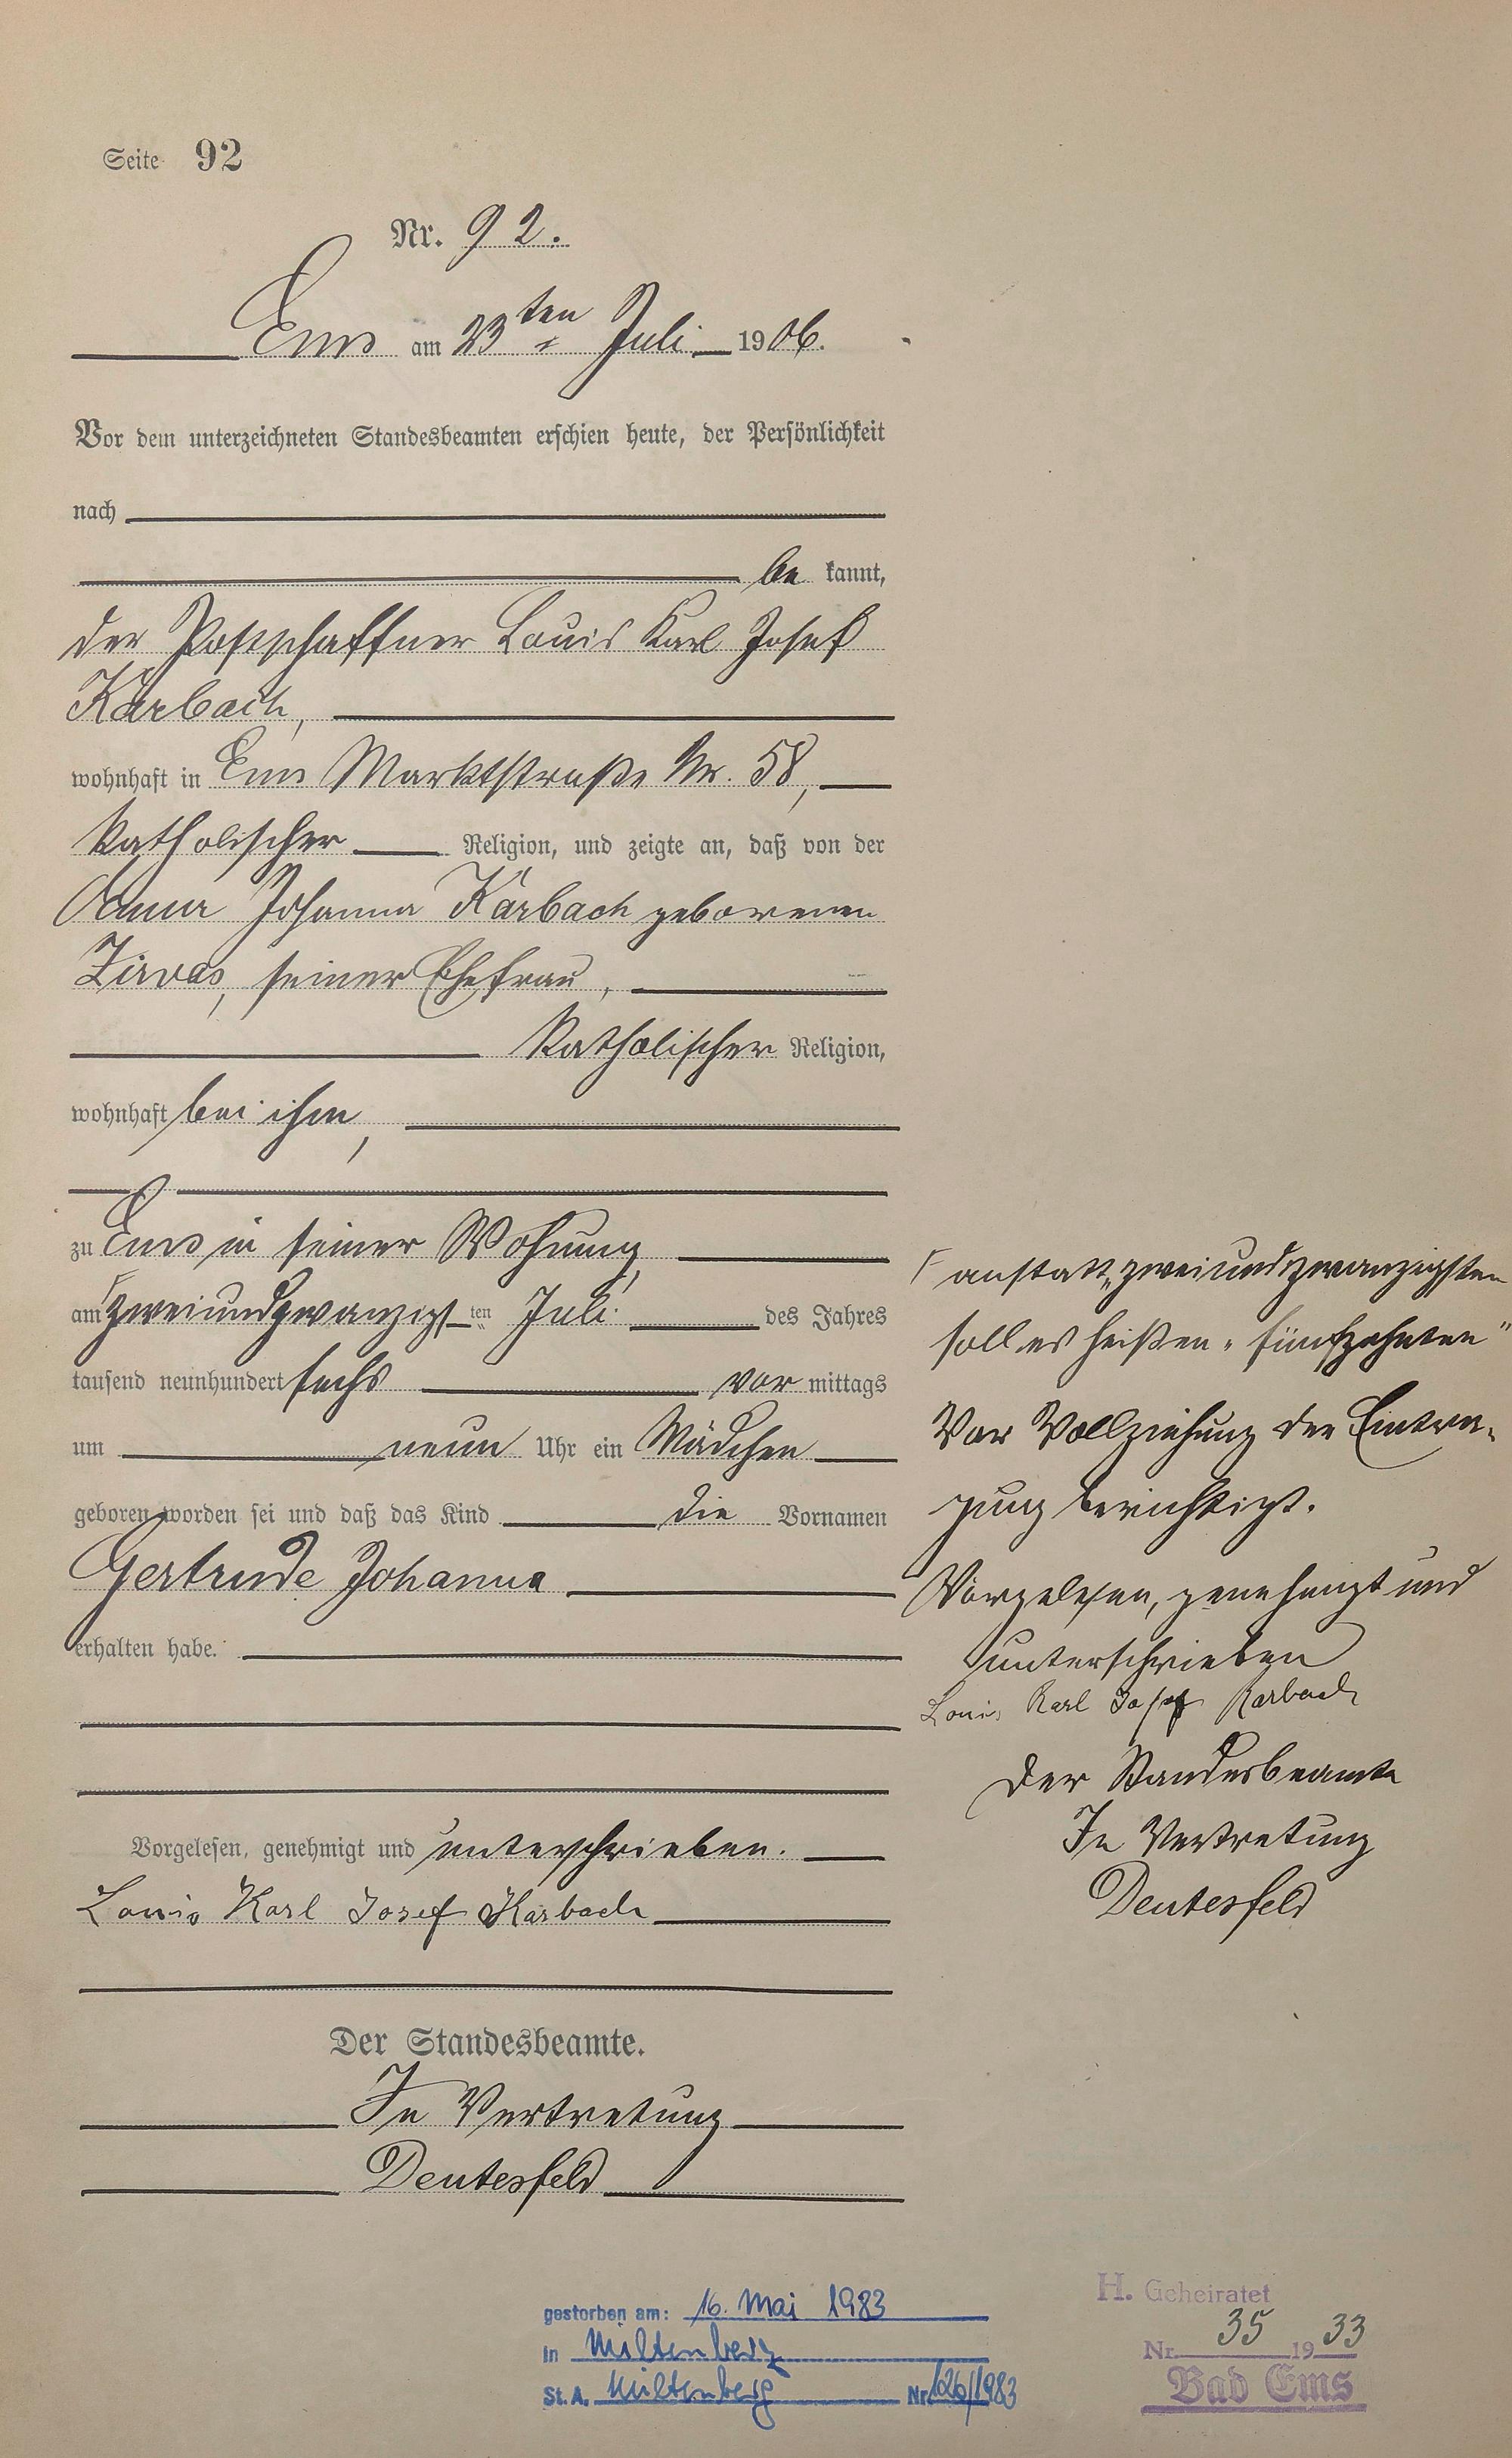 Seite 92
Nr. 92.
Ems am 23ten Juli 1906.
Vor dem unterzeichneten Standesbeamten erschien heute, der Persönlichkeit
nach
be kannt,
der Postschaffner Louis Karl Josef
Karbach,
wohnhaft in Ems Marktstraße Nr. 58,
katholischer Religion, und zeigte an, daß von der
Anna Johanna Karbach geborenen
Zirvas, seiner Ehefrau,
katholischer Religion,
wohnhaft bei ihm,
zu Ems in seiner Wohnung,
am zweiundzwanzigsten Juli des Jahres
tausend neunhundert sechs vor mittags
um neun Uhr ein Mädchen
geboren worden sei und daß das Kind die Vornamen
Gertrude Johanna
erhalten habe.
Vorgelesen, genehmigt und unterschrieben.
Louis Karl Josef Karbach
Der Standesbeamte.
In Vertretung
Deutesfeld
anstatt „zweiundzwanzigsten
soll es heißen „fünfzehnten"
Vor Vollziehung der Eintra-
gung berichtigt.
Vorgelesen, genehmigt und
unterschrieben
Louis Karl Josef Karbach
Der Standesbeamte
In Vertretung
Deutesfeld
gestorben am: 16. Mai 1983
in Miltenberg
St. A. Miltenberg Nr. 126/1983
H. Geheiratet
Nr. 35 1933
Bad Ems